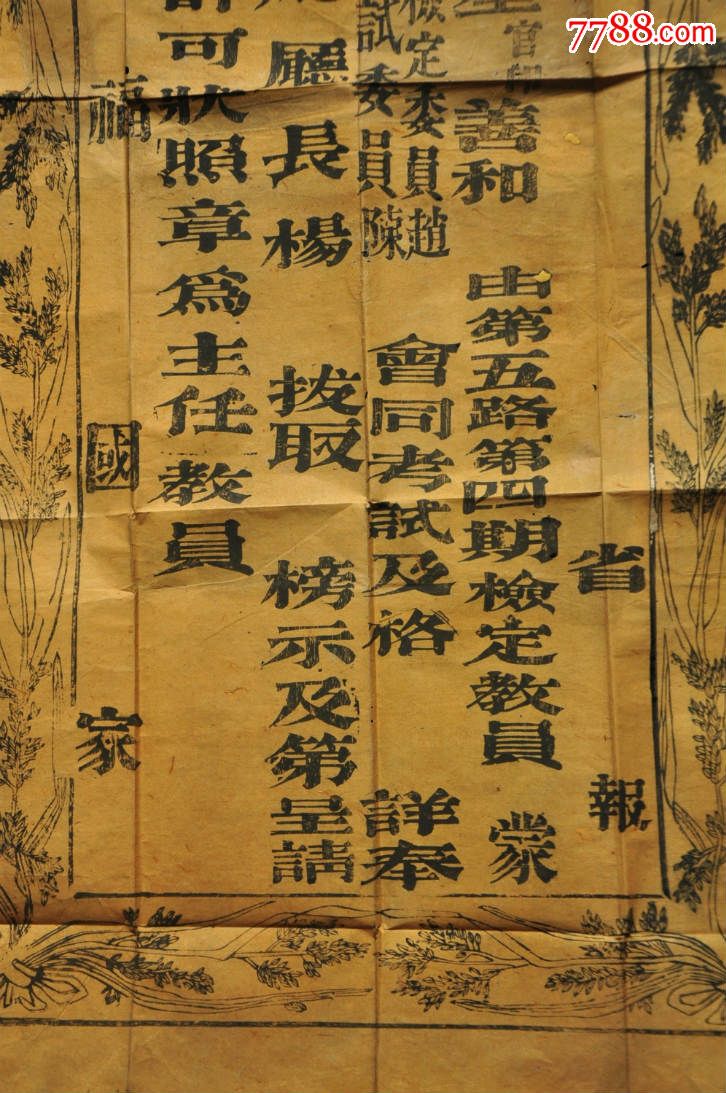 7788.com
省報
官印善和 由第五路第四期檢定教員 蒙
檢定委員趙
試委員陳 會同考試及格 詳奉
廳長楊 拔取 榜示及第呈請
許可狀照章為主任教員
福國家